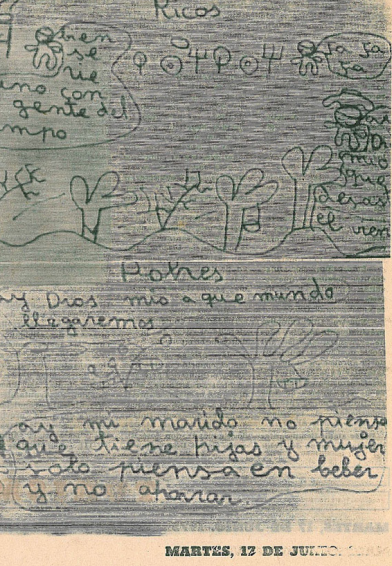 Ricos
bien
se
rie
uno con
gente del
mpo
ja ja
ja
Pobres
ay Dios mio a que mundo
llegaremos
ay mi marido no piensa
que tiene hijas y mujer
solo piensa en beber
y no ahorrar.
MARTES, 12 DE JUNIO